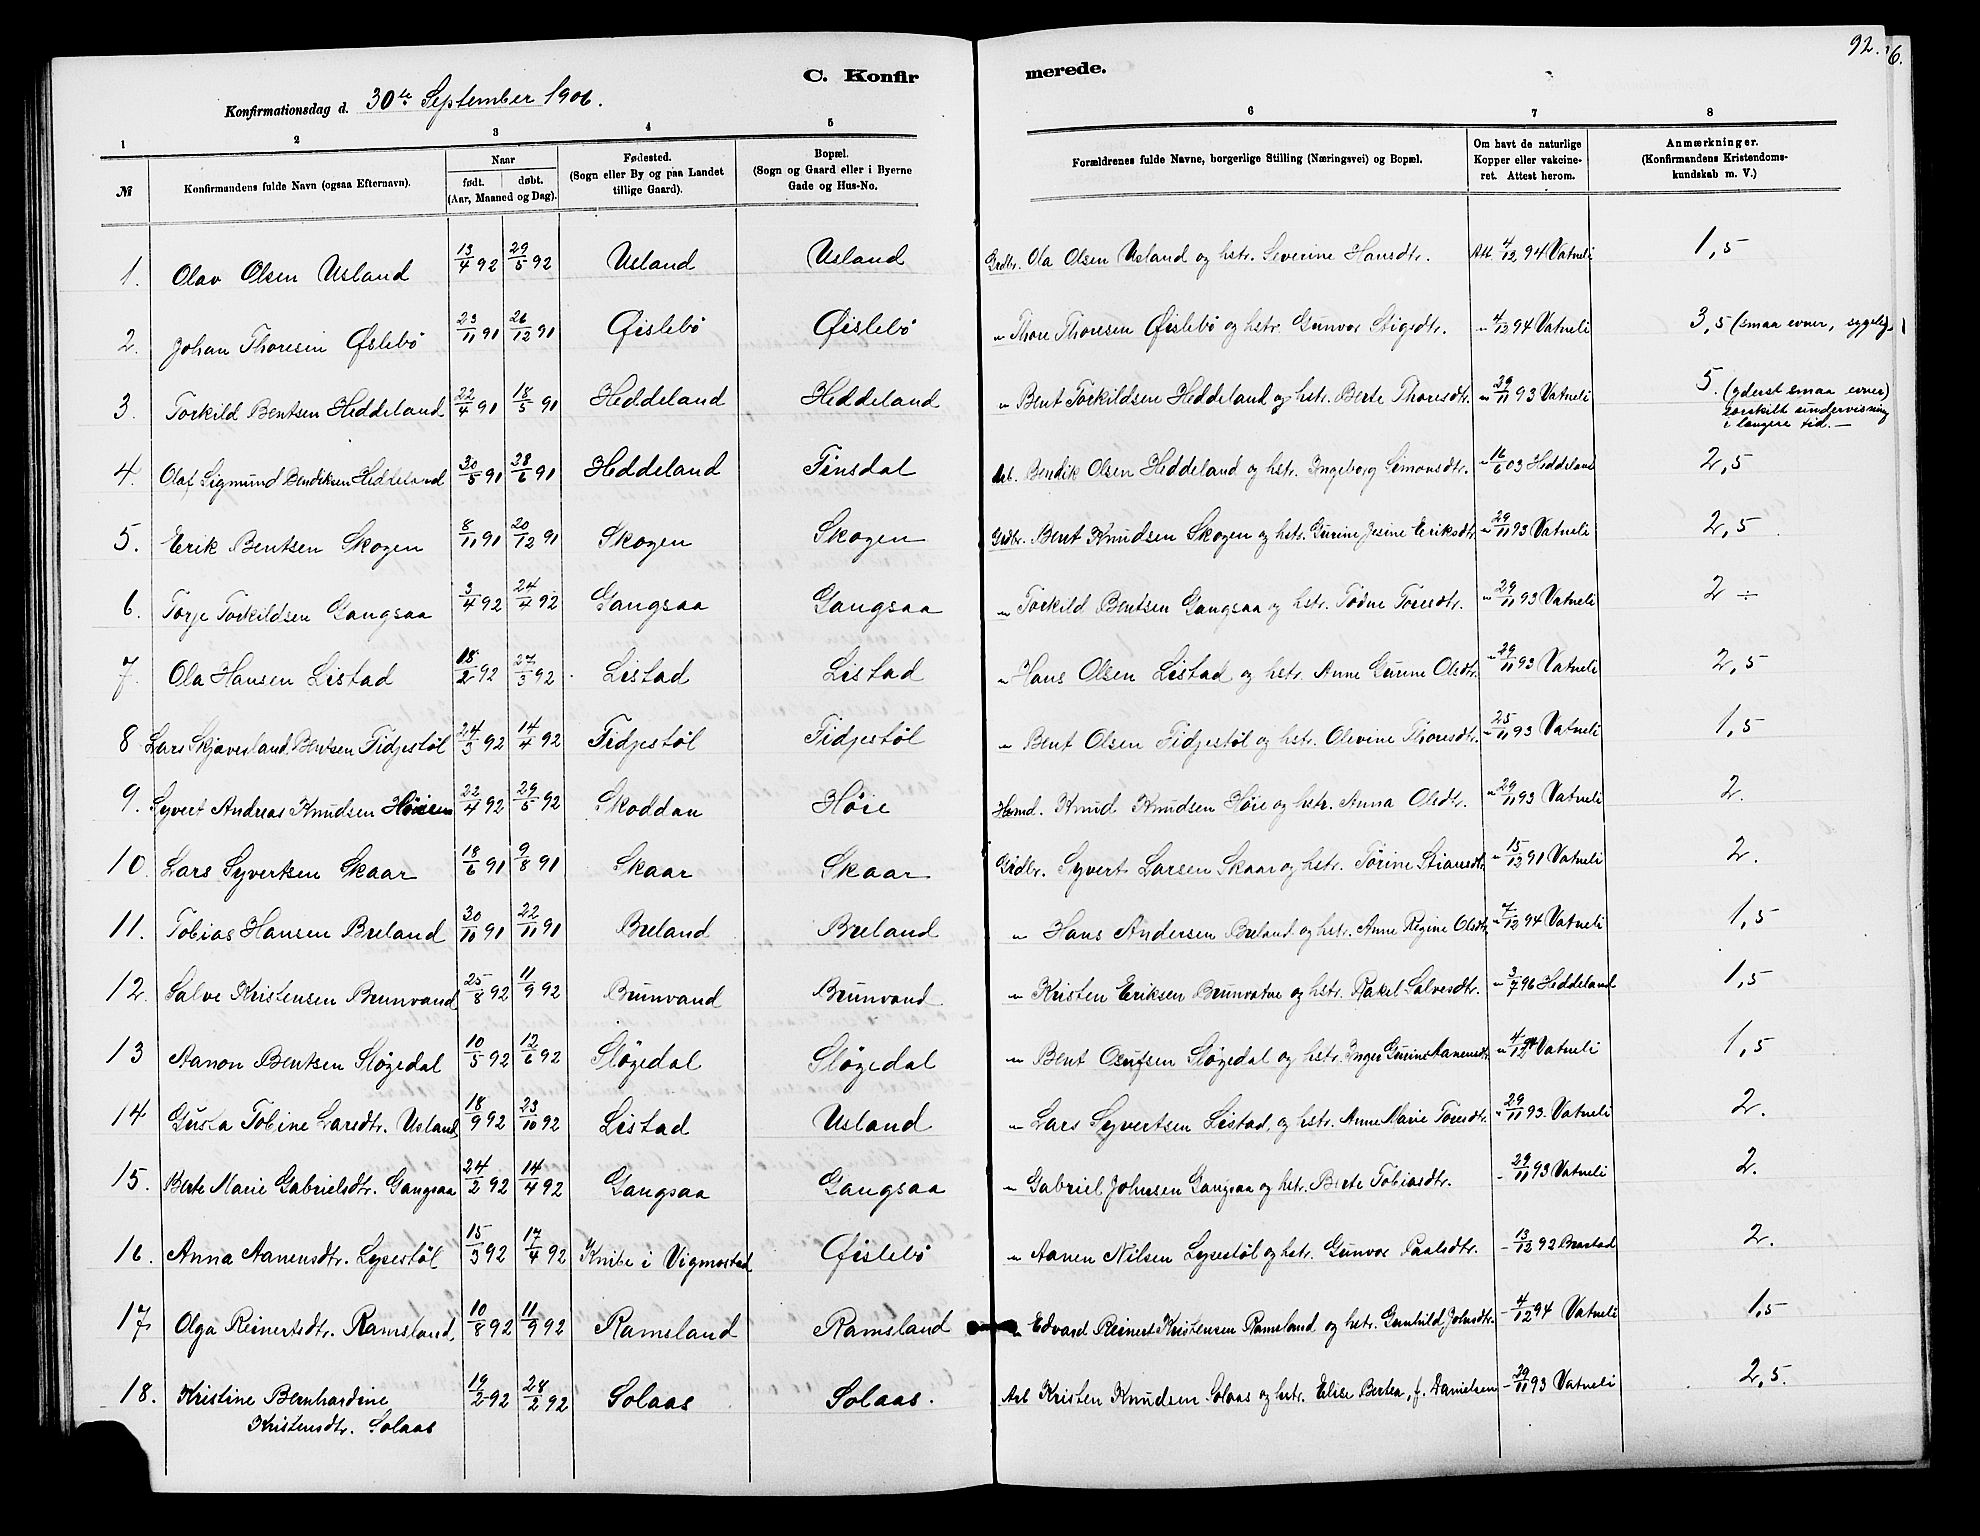 92.
6.
C. Konfirmerede.
Konfirmationsdag d. 30te September 1906.
1 2 3 4 5 6 7 8
№ | Konfirmandens fulde Navn (ogsaa Efternavn). | Naar født. døbt. (Aar, Maaned og Dag). | Fødested. (Sogn eller By og paa Landet tillige Gaard). | Bopæl. (Sogn og Gaard eller i Byerne Gade og Hus-No. | Forældrenes fulde Navne, borgerlige Stilling (Næringsvei) og Bopæl. | Om havt de naturlige Kopper eller vakcineret. Attest herom. | Anmærkninger. (Konfirmandens Kristendomskundskab m. V.)
1. Olav Olsen Usland 13/4 92 29/5 92 Usland Usland Grdbr. Ola Olsen Usland og hstr. Severine Hansdtr. Att 4/12 94 Vatneli 1,5
2. Johan Thoresen Øslebø 23/11 91 26/12 91 Øislebø Øislebø " Thore Thoresen Øislebø og hstr. Gunvor Stigsdtr. " 4/12 94 Vatneli 3,5 (smaa evner, sygelig)
3. Torkild Bentsen Heddeland 22/4 91 18/5 91 Heddeland Heddeland " Bent Torkildsen Heddeland og hstr. Berte Thoresdtr. " 29/11 93 Vatneli 5. (yderst smaa evner)
særskilt undervisning
i længere tid. —
4. Olaf Sigmund Bendiksen Heddeland 30/5 91 28/6 91 Heddeland Finsdal Arb. Bendik Olsen Heddeland og hstr. Ingeborg Simonsdtr. " 16/6 03 Heddeland 2,5
5. Erik Bentsen Skogen 8/11 91 20/12 91 Skogen Skogen Grdbr. Bent Knudsen Skogen og hstr. Gurine Jesine Eriksdtr. " 29/11 93 Vatneli 2,5
6. Torje Torkildsen Gangsaa 3/4 92 24/4 92 Gangsaa Gangsaa " Torkild Bentsen Gangsaa og hstr. Todne Toresdtr. " 29/11 93 Vatneli 2 ÷
7. Ola Hansen Listad 18/2 92 27/3 92 Listad Listad " Hans Olsen Listad og hstr. Anne Gurine Olsdtr. " 29/11 93 Vatneli 2,5
8 Lars Skjævesland Bentsen Tidjestøl 24/3 92 14/4 92 Tidjestøl Tidjestøl " Bent Olsen Tidjestøl og hstr. Olevine Thoresdtr. " 25/11 93 Vatneli 1,5
9. Syvert Andreas Knudsen Høie 22/4 92 29/5 92 Skoddan Høie Husmd. Knud Knudsen Høie og hstr. Anna Olsdtr. " 29/11 93 Vatneli 2.
10. Lars Syvertsen Skaar 18/6 91 9/8 91 Skaar Skaar Grdbr. Syvert Larsen Skaar og hstr. Torine Stiansdtr. " 15/12 91 Vatneli 2.
11. Tobias Hansen Breland 30/10 91 22/11 91 Breland Breland " Hans Andersen Breland og hstr. Anne Regine Olsdtr. " 7/12 94 Vatneli 1,5
12. Salve Kristensen Brunvand 25/8 92 11/9 92 Brunvand Brunvand " Kristen Eriksen Brunvatne og hstr. Rakel Salvesdtr. " 3/7 96 Heddeland 1,5
13 Aanon Bentsen Sløgedal 10/5 92 12/6 92 Sløgedal Sløgedal " Bent Olufsen Sløgedal og hstr. Inger Gurine Aanensdtr. " 4/12 94 Vatneli 1,5
14 Gusta Tobine Larsdtr. Usland 18/9 92 23/10 92 Listad Usland " Lars Syvertsen Listad, og hstr. Anne Marie Toresdtr. " 29/11 93 Vatneli 2.
15. Berte Marie Gabrielsdtr. Gangsaa 24/2 92 14/4 92 Gangsaa Gangsaa " Gabriel Johnsen Gangsaa og hstr. Berte Tobiasdtr. " 29/11 93 Vatneli 2.
16. Anna Aanensdtr. Lysestøl 15/3 92 17/4 92 Knibe i Vigmostad Øislebø " Aanen Nilsen Lysestøl og hstr. Gunvor Paalsdtr. " 13/12 92 2.
17. Olga Reinertsdtr. Ramsland. 10/8 92 11/9 92 Ramsland Ramsland " Edvard Reinert Kristensen Ramsland og hstr. Gunhild Johnsdtr. " 4/12 94 Vatneli 1,5
18. Kristine Bernhardine 19/2 92 28/2 92 Solaas Solaas. Arb Kristen Knudsen Solaas og hstr. Elise Bertea, f. Danielsen " 29/11 93 Vatneli 2,5.
Kristensdtr. Solaas